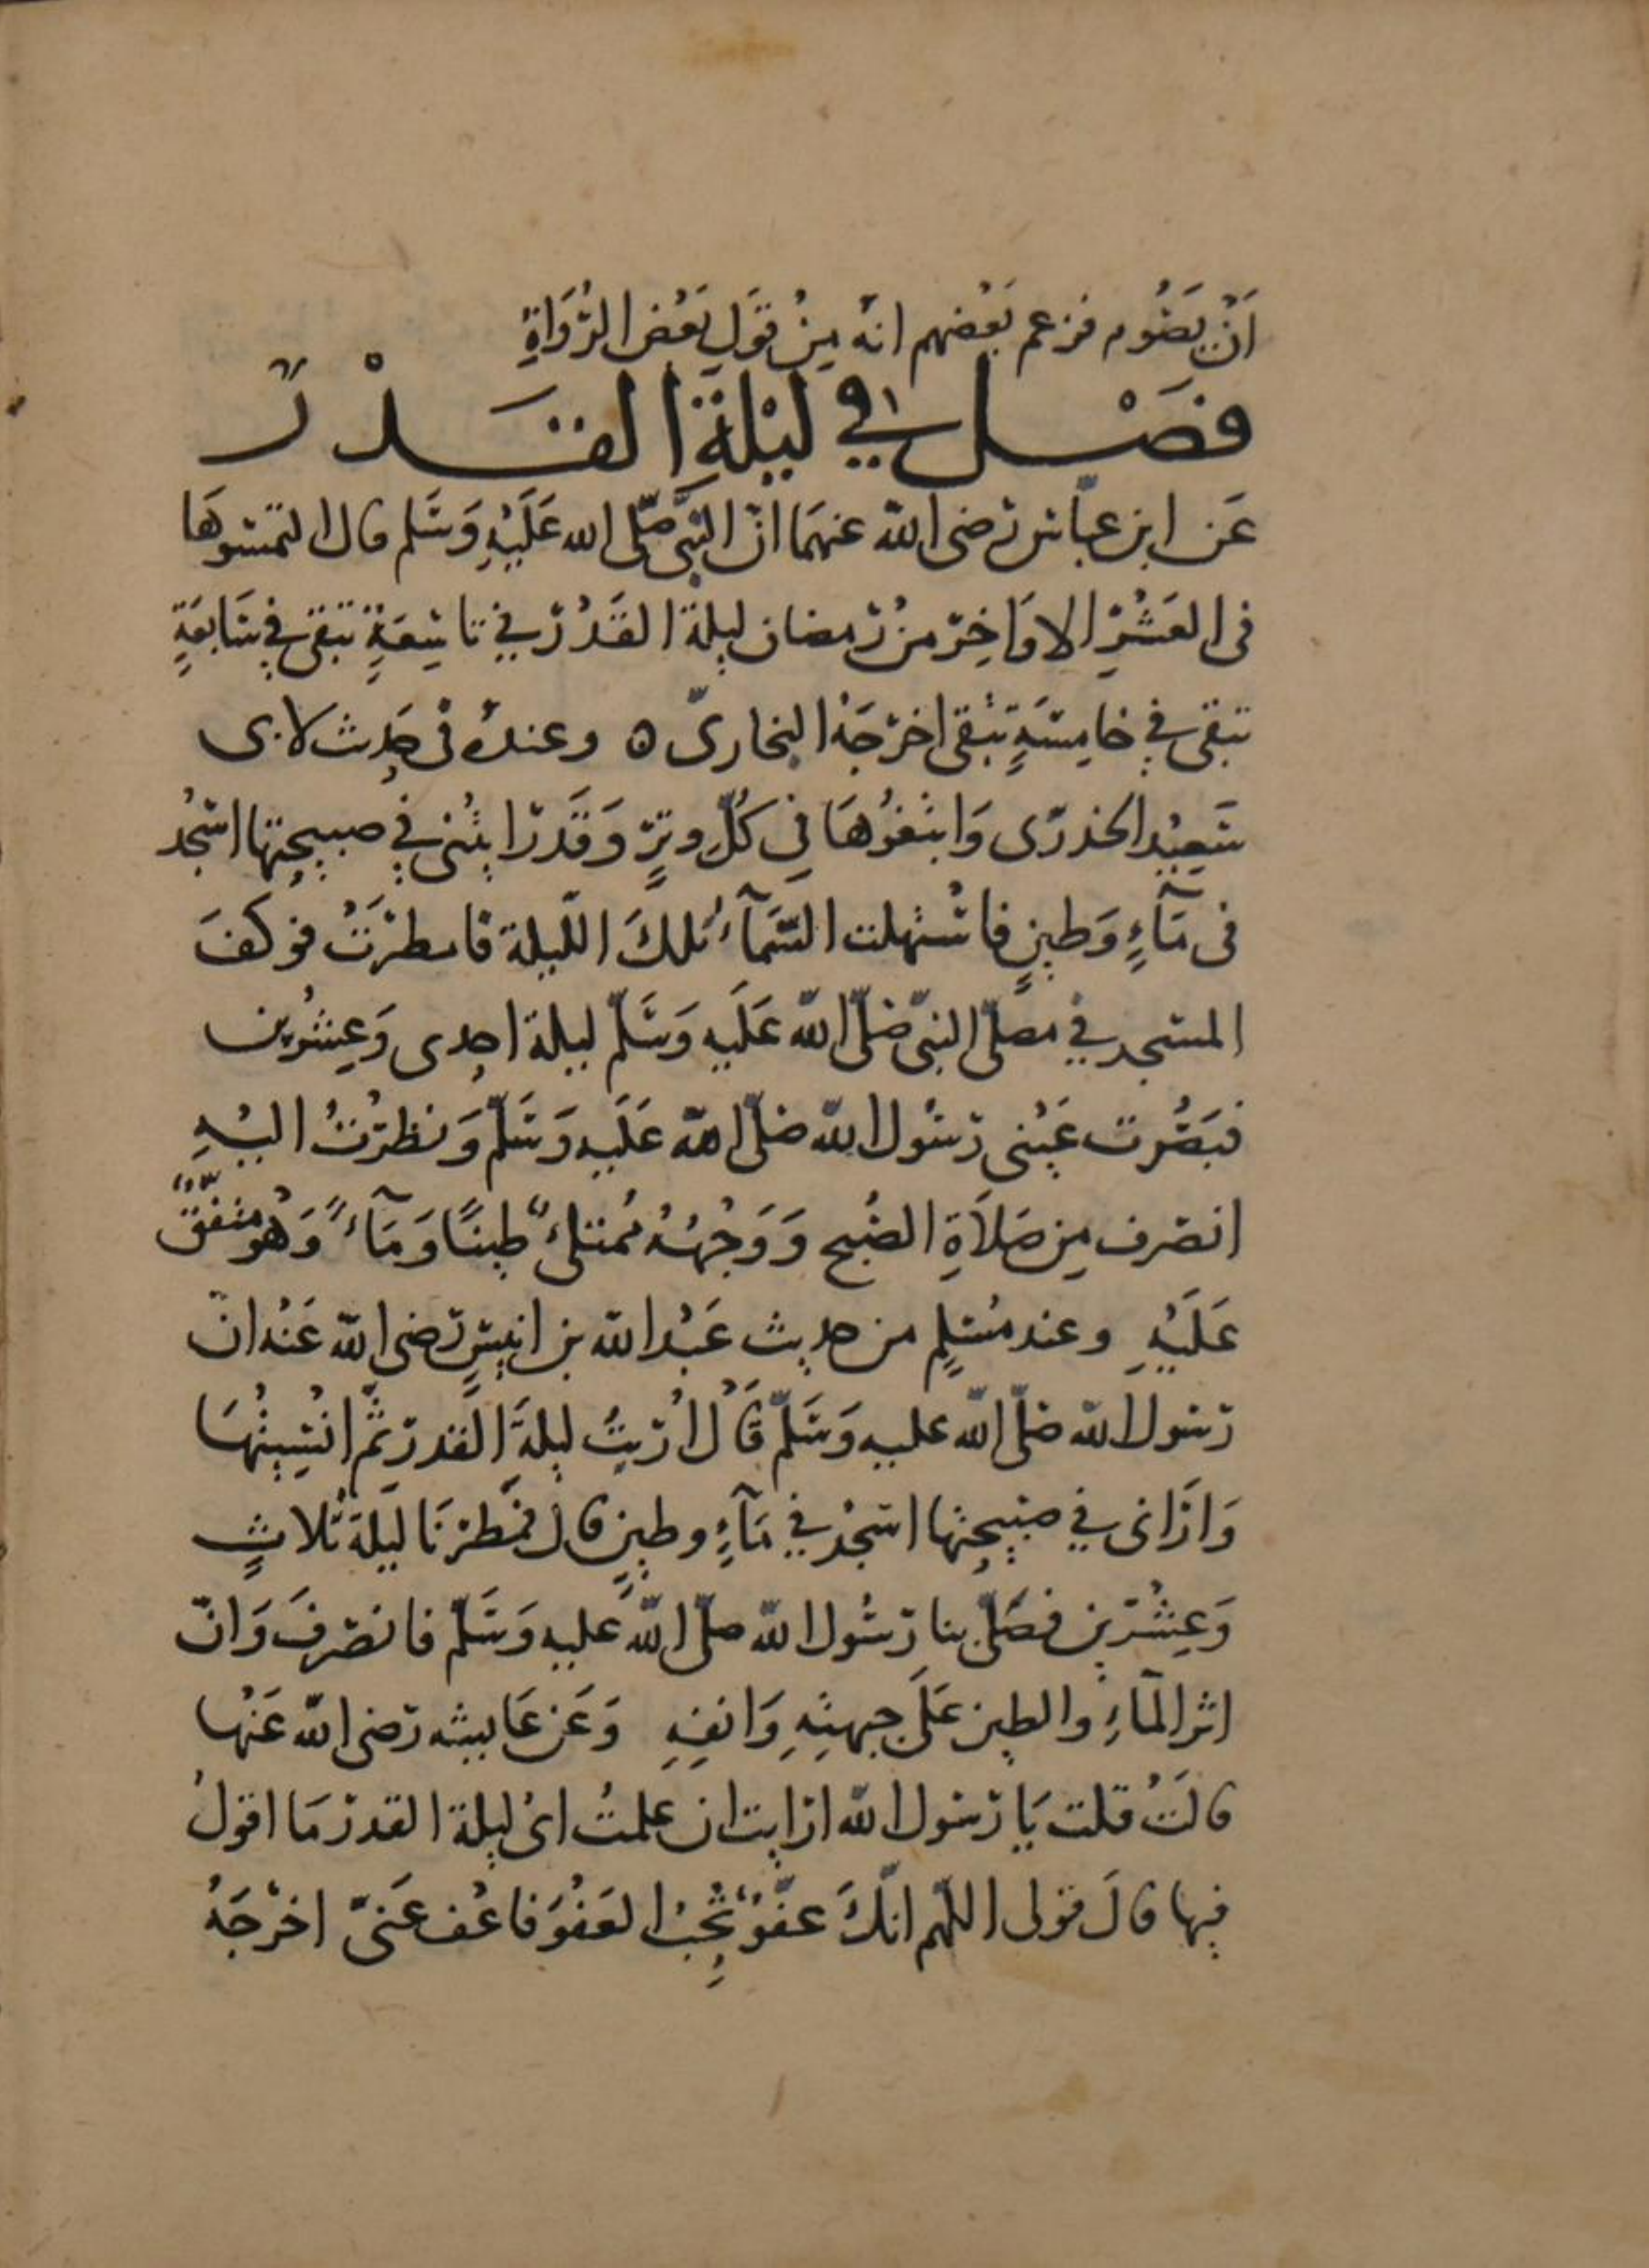 اَنْ يَصُوم فزعم بَعْضهم انه مِنْ قَولِ بَعْض الرُّوَاةِ
فصَْل في لَيْلَةِ القَدْر
عَن ابن عبّاس رضى الله عنهمَا انّ النّبى صّلى الله عَلَيْهِ وَسَلم قال التمسُوهَا
فى العَشْرِ الاوَاخِر من رَمضان ليلة القَدْر في تاسِعَةٍ تبقى في سَابعَةٍ
تبقى في خامِسَةٍ تَبْقى اخرَجَهُ البخارىّ ه وعندهُ فى حَدِيث لابى
سَعِيْد الخدرى وَابتغُوْهَا فِى كُلِّ وِترٍ وَقَد رَايتُنى في صبيحتها اسْجُد
فى مَآءٍ وَطينٍ فاسْتهلت السَّمَآءُ تلكَ اللّيلة فامطرَتْ فوَكفَ
المسجد في مصلّى النبىّ صّلى الله عَلَيه وَسَلّم ليلة احدى وَعِشْرين
فبَصُرت عَيْنى رَسُول الله صَلّى الله عَلَيه وَسَلّم وَنظرْتُ اليْهِ
انصرف مِن صَلاَةِ الصُّبح وَوَجْهُهُ مُمتلئٌ طِينًا وَمَآءً وَهُو متفّقٌ
عَلَيْهِ وعند مُسلِمٍ من حديث عَبْد الله بن انيسٍ رَضى الله عَنْه انّ
رَسُول الله صَلّى الله عليه وَسَلّم قَال اُرِيتُ ليلةَ القدر ثمّ اُنْسِيْتُهَا
وَارَانى في صَبِيحتها اسْجُد في مَآءٍ وطينٍ قال فمُطِرْنَا لَيْلَة ثلاثٍ
وَعِشْرِين فصَلّى بنا رَسُول الله صلّى الله عليه وَسَلّم فانصَرفَ وَانّ
اثر المآءِ والطين عَلَى جبهتِهِ وَانفِهِ وَعَن عَايشه رَضى الله عَنْها
قالَتْ قلت يَا رَسُول الله ارَايت ان علمتُ اىُ ليلة القدر مَا اقولُ
فيها قالَ قولى اللهّم انّكَ عفُوٌّ تُحِبُّ العَفْوَ فاعْف عَنىّ اخرَجَهُ